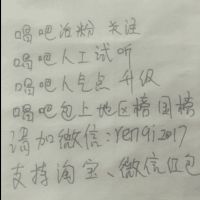 唱吧涨粉 关注
唱吧人工试听
唱吧人气点 升级
唱吧包上地区榜 国榜
请加微信:renqi2017
支持淘宝、微信红包